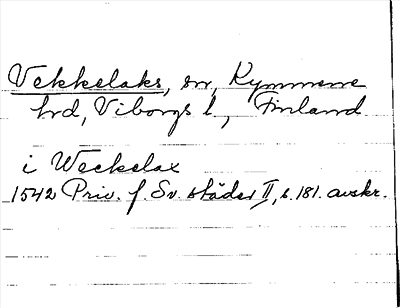 Vekkelaks, sn, Kymmene
hrd, Viborgs l, Finland
i Weckelax
1542 Priv. f. Sv. städer II, s. 181. avskr.